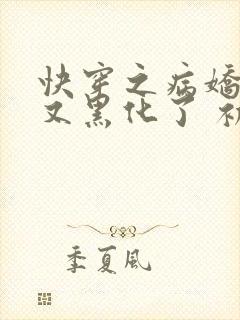 快穿之病嬌
又黑化了
季夏風